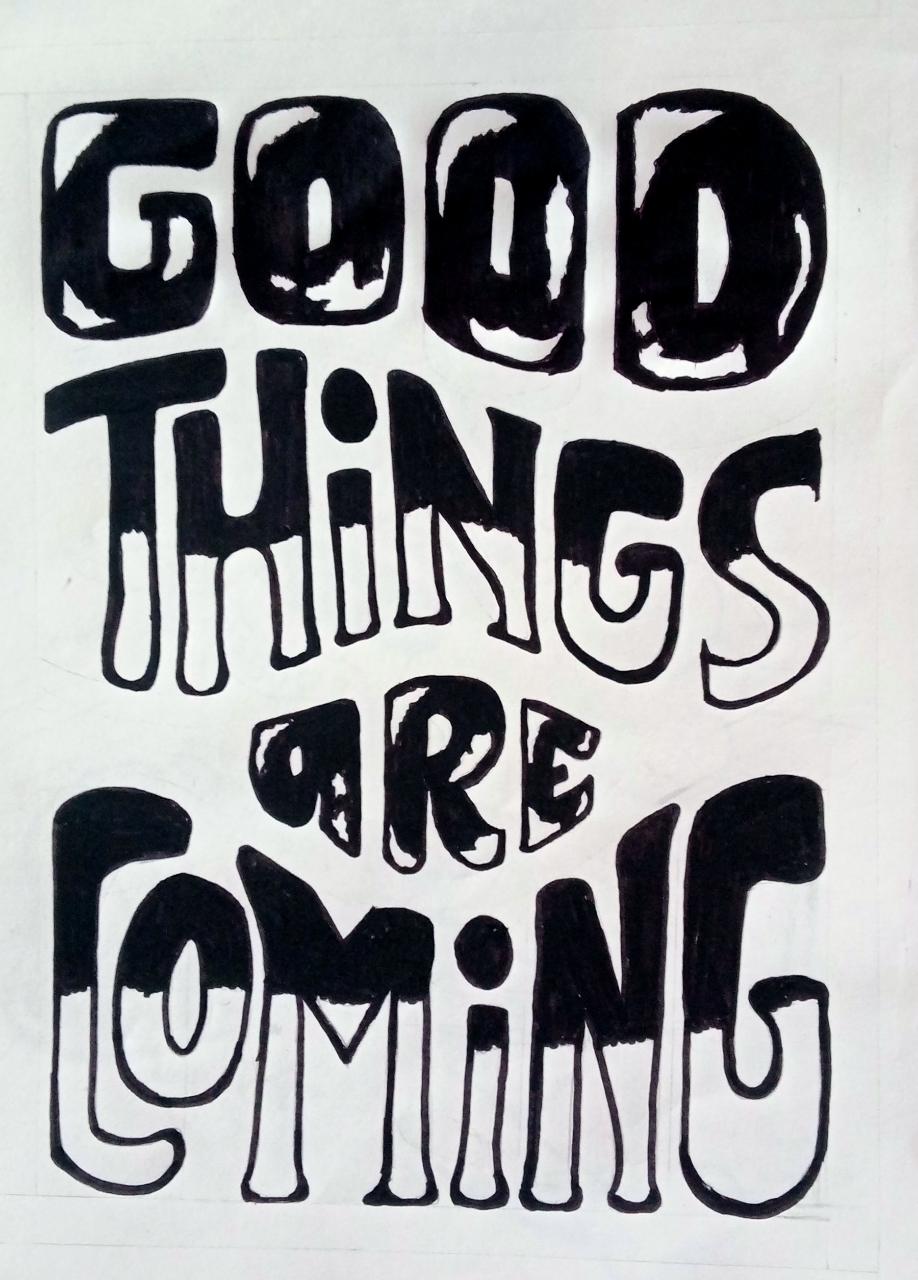 GOOD
THiNGS
aRE
COMiNG